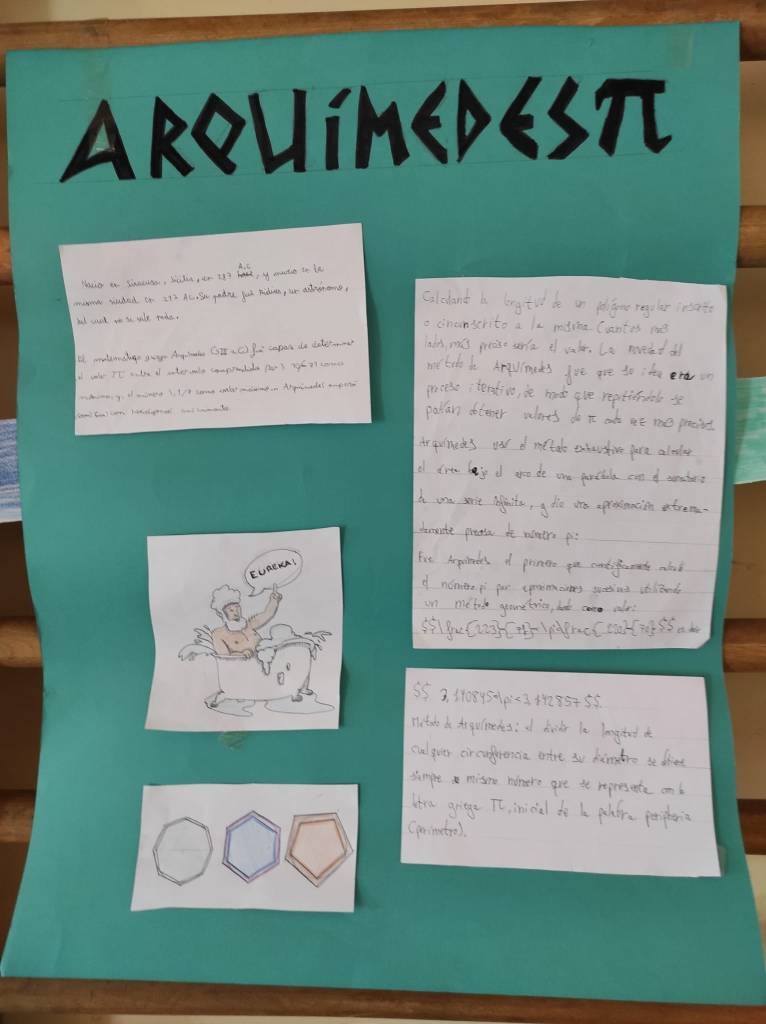 ARQUÍMEDES π
Nacio en Siracusa, Sicilia, en 287 A.C, y murio en la
misma ciudad en 212 AC. Su padre fué Fidias, un astrónomo,
del cual no se sabe nada.
El matematico griego Arquimedes (SIII a.C) fué capaz de determinar
el valor π entre el intervalo comprendido por 3 10/71 como
minimo, y el número 3 1/7 como valor maximo. Arquimedes
EUREKA!
Calculando la longitud de un polígono regular inscrito
o circunscrito a la misma. Cuantos más
lados, más preciso sería el valor. La novedad del
método de Arquímedes fue que se idea era un
proceso iterativo, de modo que repitiéndolo se
podían obtener valores de π cada vez más precisos.
Arquímedes usó el método exhaustivo para calcular
el área bajo el arco de una parábola con el sumatorio
de una serie infinita, y dio una aproximación extrema-
damente precisa de número pi:
Fue Arquímedes el primero que científicamente calculó
el número pi por aproximaciones sucesivas utilizando
un método geométrico, dado como valor:
$$\frac{223}{71}<\pi\frac{220}{70}$$ es decir
$$ 3,140845<\pi<3,142857 $$.
Método de Arquímedes: al dividir la longitud de
cualquier circunferencia entre su diámetro se obtiene
siempre e mismo número que se representa con la
letra griega π, inicial de la palabra periphereia
(perímetro).